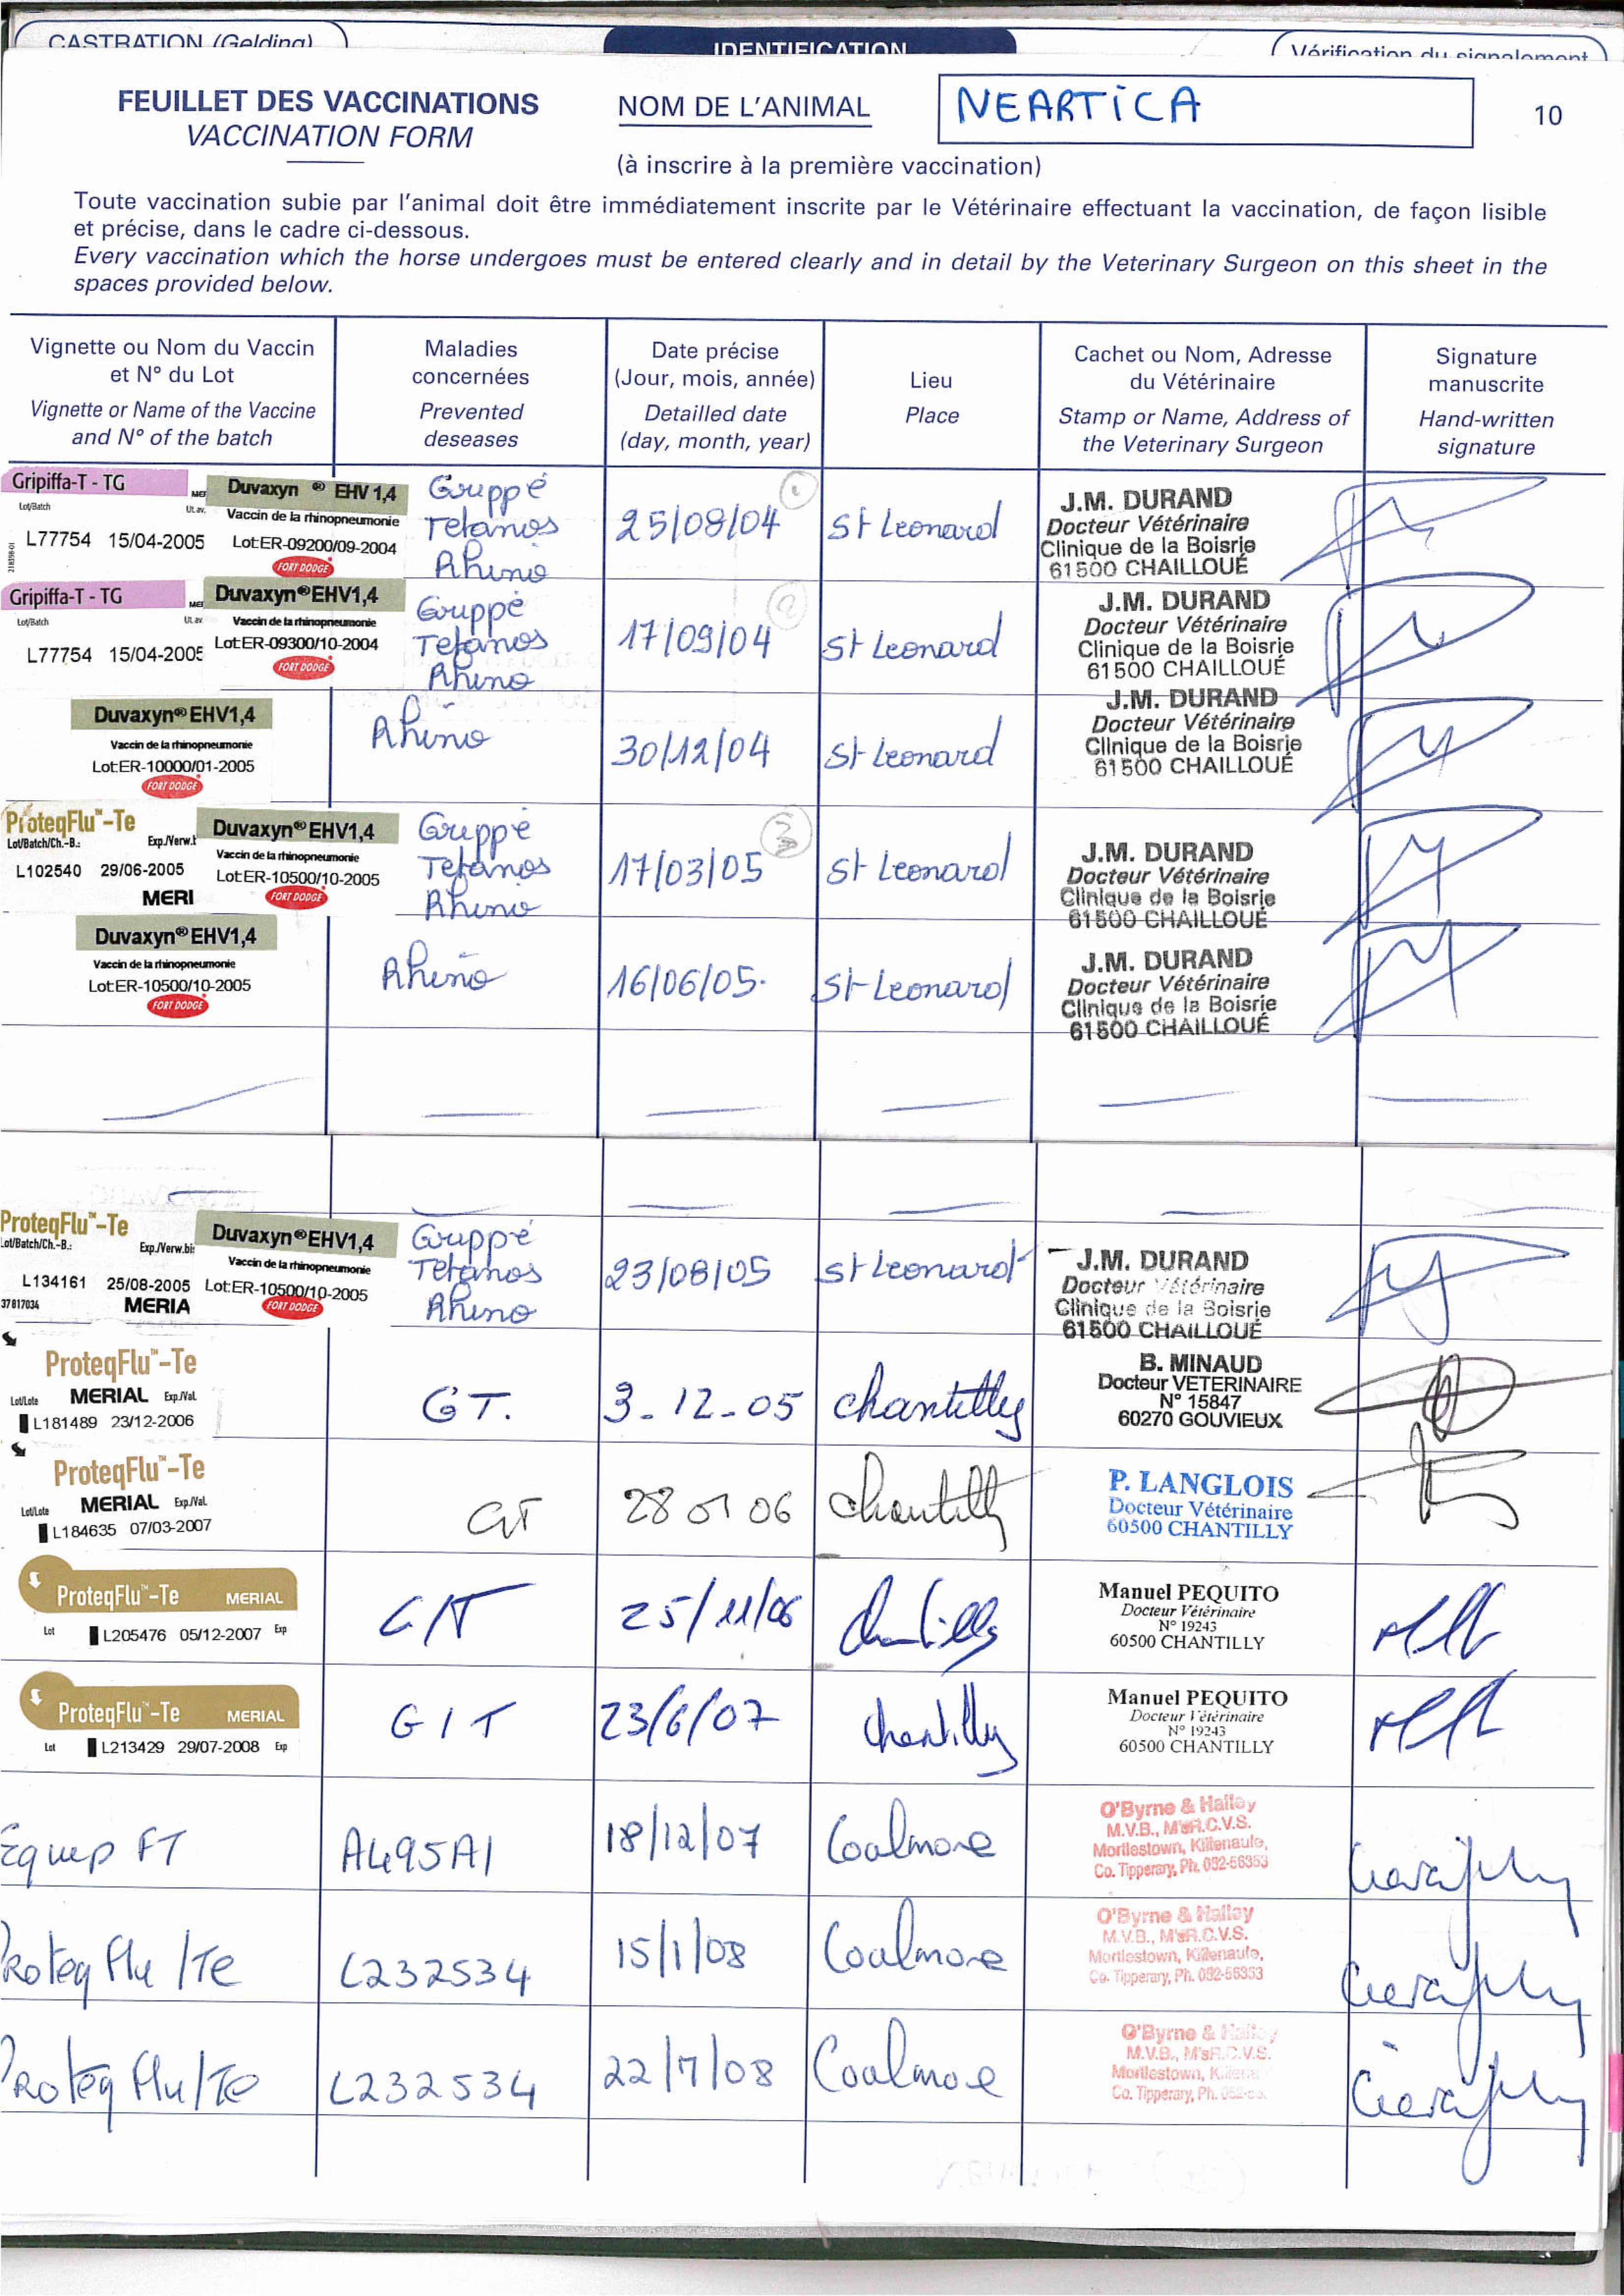 CASTRATION (Gelding)
IDENTIFICATION
Vérification du signalement
FEUILLET DES VACCINATIONS
VACCINATION FORM
NOM DE L'ANIMAL
NEARTiCA
10
(à inscrire à la première vaccination)
Toute vaccination subie par l'animal doit être immédiatement inscrite par le Vétérinaire effectuant la vaccination, de façon lisible
et précise, dans le cadre ci-dessous.
Every vaccination which the horse undergoes must be entered clearly and in detail by the Veterinary Surgeon on this sheet in the
spaces provided below.
Vignette ou Nom du Vaccin
et N° du Lot
Vignette or Name of the Vaccine
and N° of the batch
Maladies
concernées
Prevented
deseases
Date précise
(Jour, mois, année)
Detailled date
(day, month, year)
Lieu
Place
Cachet ou Nom, Adresse
du Vétérinaire
Stamp or Name, Address of
the Veterinary Surgeon
Signature
manuscrite
Hand-written
signature
Gripiffa-T - TG
Lot/Batch
Ut. av.
L77754 15/04-2005
218398-01
Duvaxyn ® EHV 1,4
Vaccin de la rhinopneumonie
Lot:ER-09200/09-2004
FORT DODGE
Grippe
Tetanos
Rhino
1
25/08/04
St Leonard
J.M. DURAND
Docteur Vétérinaire
Clinique de la Boisrie
61500 CHAILLOUÉ
Gripiffa-T - TG
Lot/Batch
Ut. av.
L77754 15/04-2005
Duvaxyn® EHV1,4
Vaccin de la rhinopneumonie
Lot:ER-09300/10-2004
FORT DODGE
Grippe
Tetanos
Rhino
2
17/09/04
St Leonard
J.M. DURAND
Docteur Vétérinaire
Clinique de la Boisrie
61500 CHAILLOUÉ
Duvaxyn® EHV1,4
Vaccin de la rhinopneumonie
Lot:ER-10000/01-2005
FORT DODGE
Rhino
30/12/04
St Leonard
J.M. DURAND
Docteur Vétérinaire
Clinique de la Boisrie
61500 CHAILLOUÉ
ProteqFlu™-Te
Lot/Batch/Ch.-B.:
Exp./Verw.b
L102540 29/06-2005
MERI
Duvaxyn® EHV1,4
Vaccin de la rhinopneumonie
Lot:ER-10500/10-2005
FORT DODGE
Grippe
Tetanos
Rhino
3
17/03/05
St Leonard
J.M. DURAND
Docteur Vétérinaire
Clinique de la Boisrie
61500 CHAILLOUÉ
Duvaxyn® EHV1,4
Vaccin de la rhinopneumonie
Lot:ER-10500/10-2005
FORT DODGE
Rhino
16/06/05.
St Leonard
J.M. DURAND
Docteur Vétérinaire
Clinique de la Boisrie
61500 CHAILLOUÉ
ProteqFlu™-Te
Lot/Batch/Ch.-B.:
Exp./Verw.bis
L134161 25/08-2005
37817034
MERIA
Duvaxyn® EHV1,4
Vaccin de la rhinopneumonie
Lot:ER-10500/10-2005
FORT DODGE
Grippe
Tetanos
Rhino
23/08/05
St Leonard
J.M. DURAND
Docteur Vétérinaire
Clinique de la Boisrie
61500 CHAILLOUÉ
ProteqFlu™-Te
Lot/Lote MERIAL Exp./Val.
L181489 23/12-2006
GT.
3-12-05
Chantilly
B. MINAUD
Docteur VETERINAIRE
N° 15847
60270 GOUVIEUX
ProteqFlu™-Te
Lot/Lote MERIAL Exp./Val.
L184635 07/03-2007
GT
28 01 06
Chantilly
P. LANGLOIS
Docteur Vétérinaire
60500 CHANTILLY
ProteqFlu™-Te MERIAL
Lot L205476 05/12-2007 Exp
G/T
25/11/06
Chantilly
Manuel PEQUITO
Docteur Vétérinaire
N° 19243
60500 CHANTILLY
ProteqFlu™-Te MERIAL
Lot L213429 29/07-2008 Exp
G/T
23/6/07
Chantilly
Manuel PEQUITO
Docteur Vétérinaire
N° 19243
60500 CHANTILLY
Equip FT
A495A1
18/12/07
Coolmore
O'Byrne & Halley
M.V.B., M'sR.C.V.S.
Mortlestown, Killenaule,
Co. Tipperary, Ph. 052-56353
Proteq Flu/Te
L232534
15/1/08
Coolmore
O'Byrne & Halley
M.V.B., M'sR.C.V.S.
Mortlestown, Killenaule,
Co. Tipperary, Ph. 052-56353
Proteq Flu/Te
L232534
22/7/08
Coolmore
O'Byrne & Halley
M.V.B., M'sR.C.V.S.
Mortlestown,
Co. Tipperary, Ph.